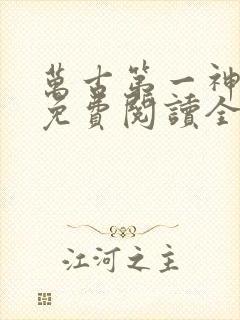 萬古第一神
免費閱讀全
江河之主